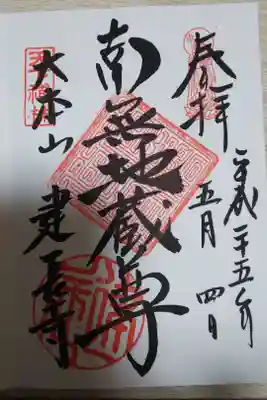 奉拝
平成二十五年
五月四日
南無地蔵尊
大本山 建長寺